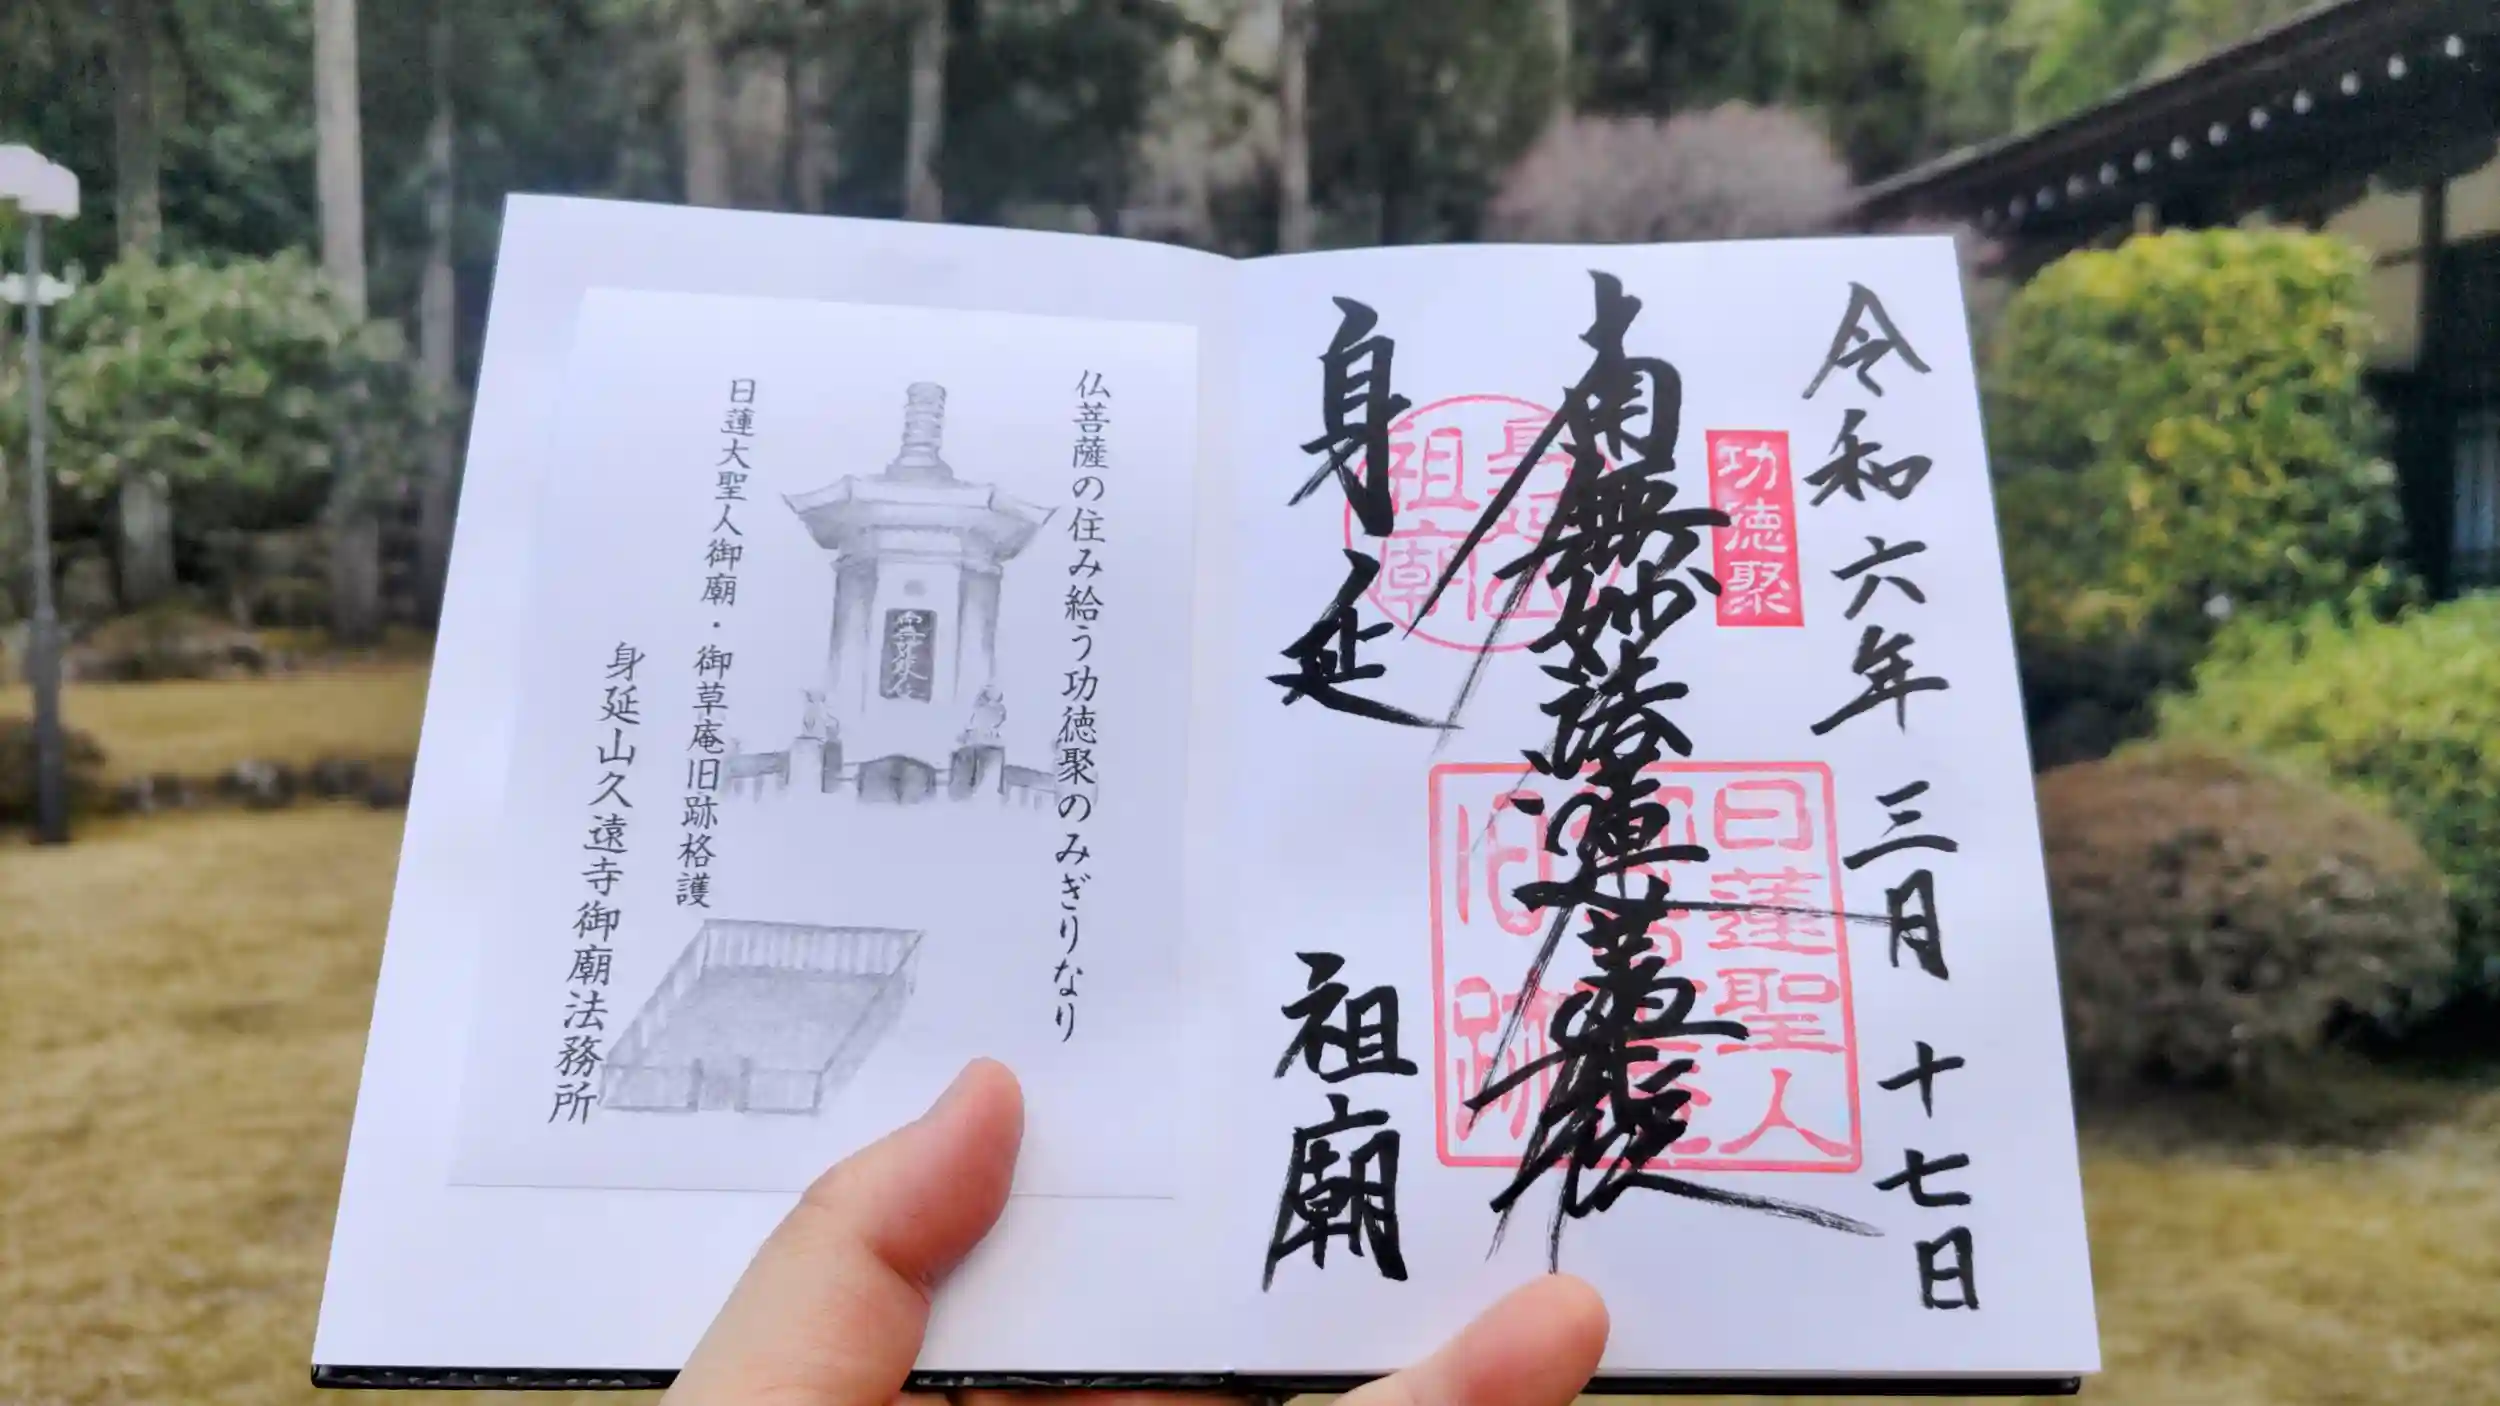 令和六年三月十七日
功徳聚
南無妙法蓮華経
日蓮聖人
旧跡
身延山
祖廟
身延
祖廟
仏菩薩の住み給う功徳聚のみぎりなり
南無妙法蓮華経
日蓮大聖人御廟・御草庵旧跡格護
身延山久遠寺御廟法務所